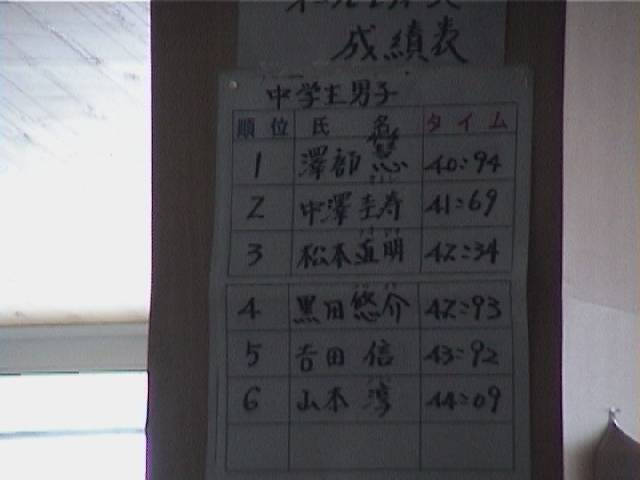 成績表
中学生男子
順位 氏 名 タイム
1 澤部 40:94
2 中澤圭寿 41:69
3 松本直明 42:34
4 黒田悠介 42:93
5 吉田 信 43:92
6 山本 44:09